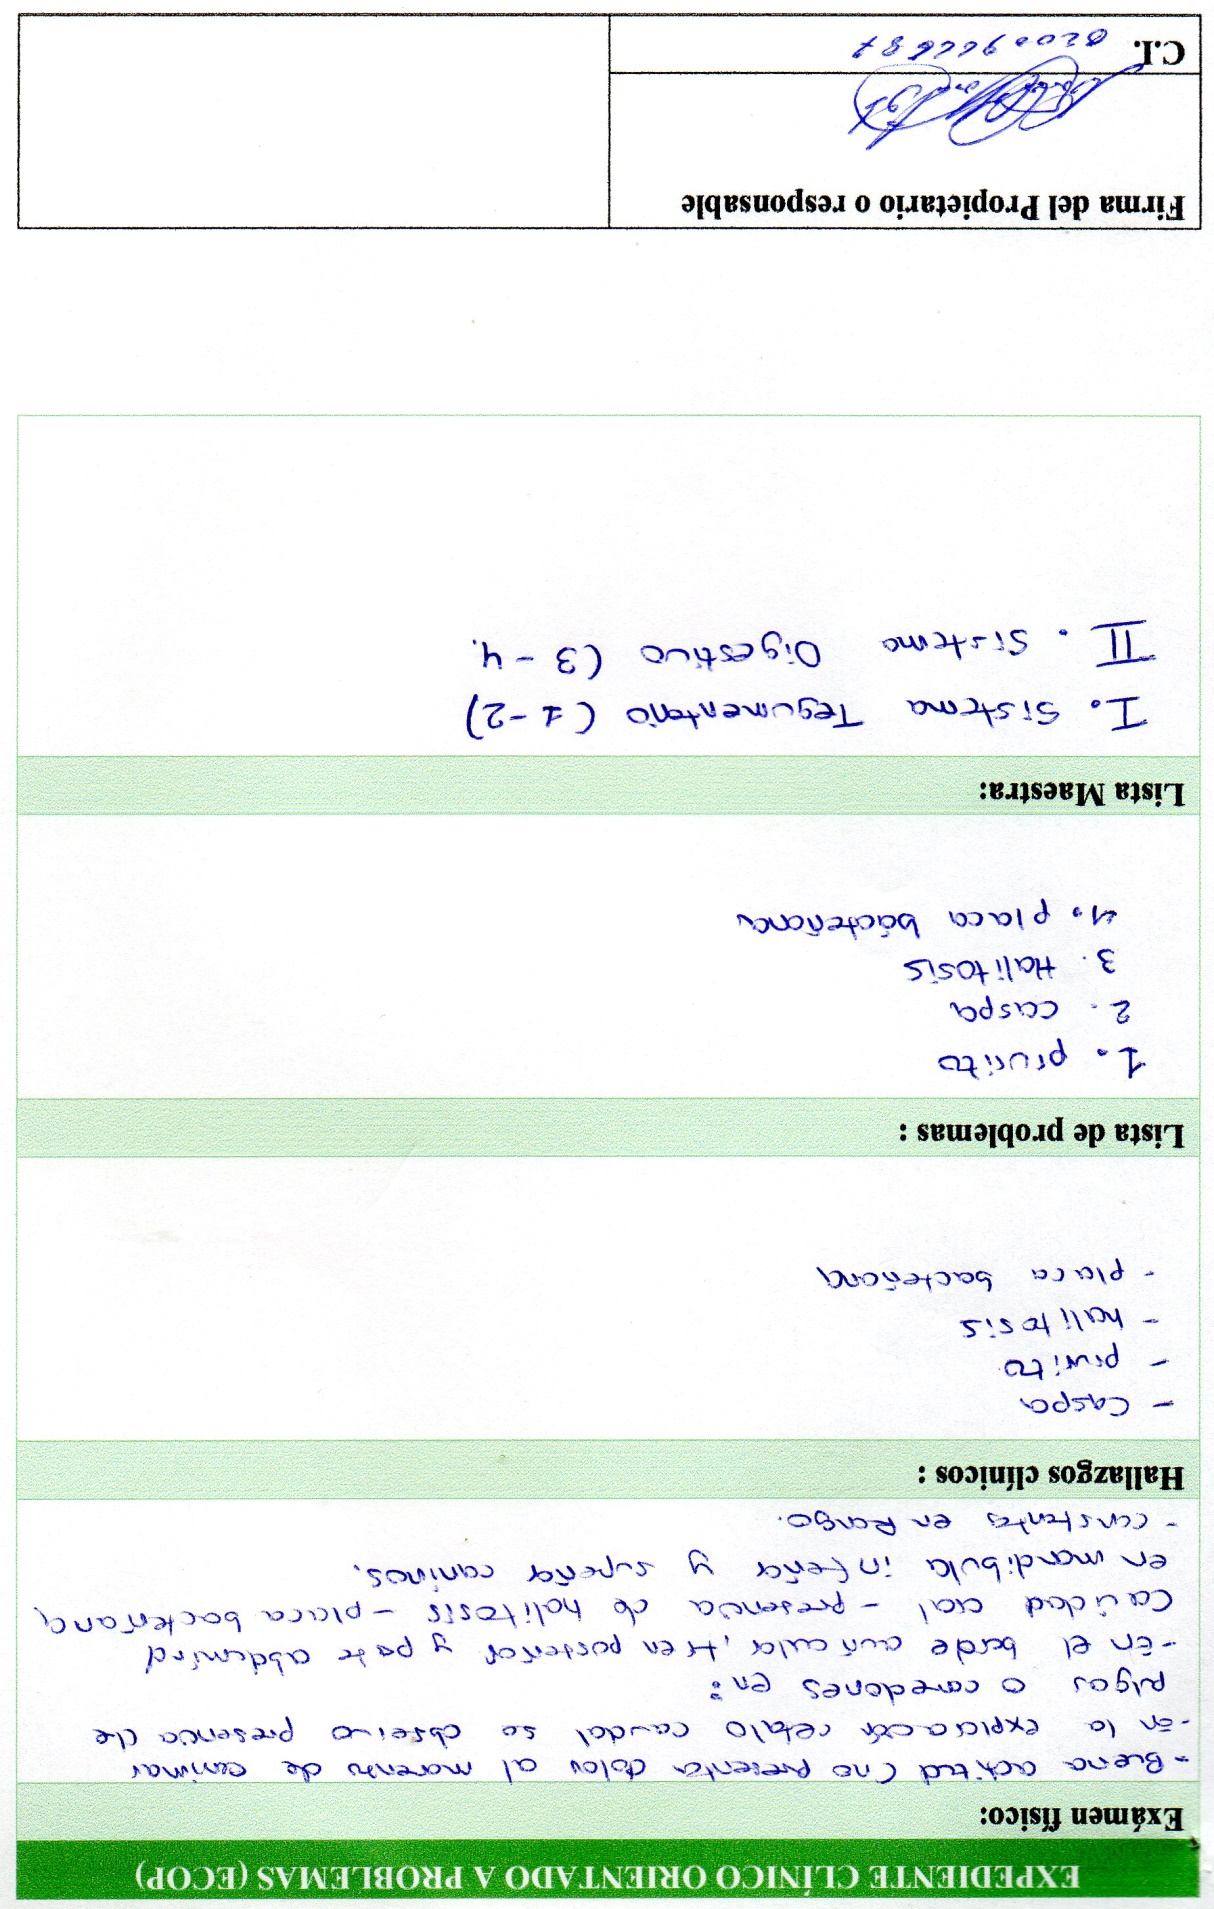 EXPEDIENTE CLÍNICO ORIENTADO A PROBLEMAS (ECOP)
Exámen físico:
- Buena actitud (no presenta dolor al momento de caminar
- En la exploración cefalo caudal se observo presencia de
pulgas o careadores en:
- En el borde auricular, tren posterior y parte abdominal
Cavidad oral - presencia de halitosis - placa bacteriana,
en mandibula inferior y superior caninos.
- constantes en Rango.
Hallazgos clínicos :
- Caspa
- prurito
- halitosis
- placa bacteriana
Lista de problemas :
1. prurito
2. caspa
3. Halitosis
4. placa bacteriana
Lista Maestra:
I. Sistema Tegumentario (1-2)
II. Sistema Digestivo (3-4.
Firma del Propietario o responsable
C.I. 0200966687